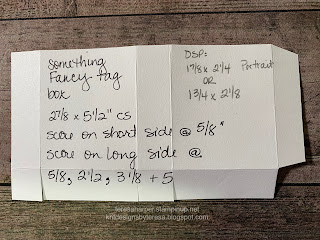 something
Fancy tag
box
2 7/8 x 5 1/2" cs
score on short side @ 5/8"
score on long side @
5/8, 2 1/2, 3 1/8 + 5
DSP:
1 7/8 x 2 1/4 Portrait
OR
1 3/4 x 2 1/8
teresaharper.stampinup.net
kntdesignsbyteresa.blogspot.com